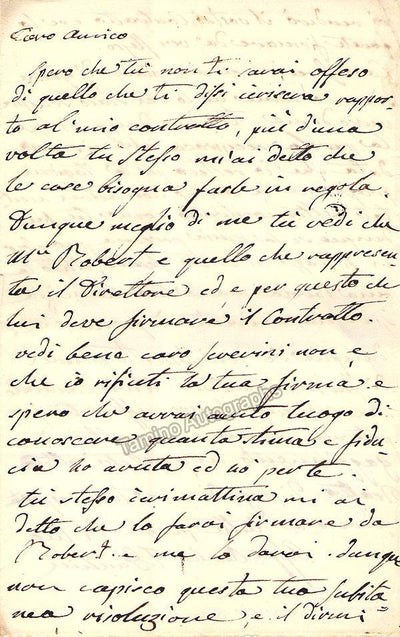 Caro Amico
spero che tu non ti sarai offeso
di quello che ti dissi ierisera rappor-
to al mio contratto, più d'una
volta tu stesso m'ai detto che
le cose bisogna farle in regola.
Dunque meglio di me tu vedi che
Mr Robert e quello che rappresen-
ta il Direttore ed e per questo che
lui deve firmare il Contratto.
vedi bene caro Severini non e
che io rifiuti la tua firma, e
spero che avrai avuto luogo di
conoscere quanta stima e fidu-
cia ho avuta ed ho per te.
tu stesso ierimattina mi ai
detto che lo farai firmare da
Robert. e me lo darai. dunque
non capisco questa tua subita
nea risoluzione, e il dirmi
Tamino Autographs